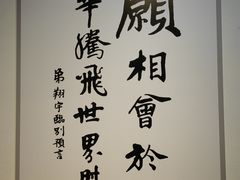 願相會於
華騰飛世界時
弟翔宇臨別預言